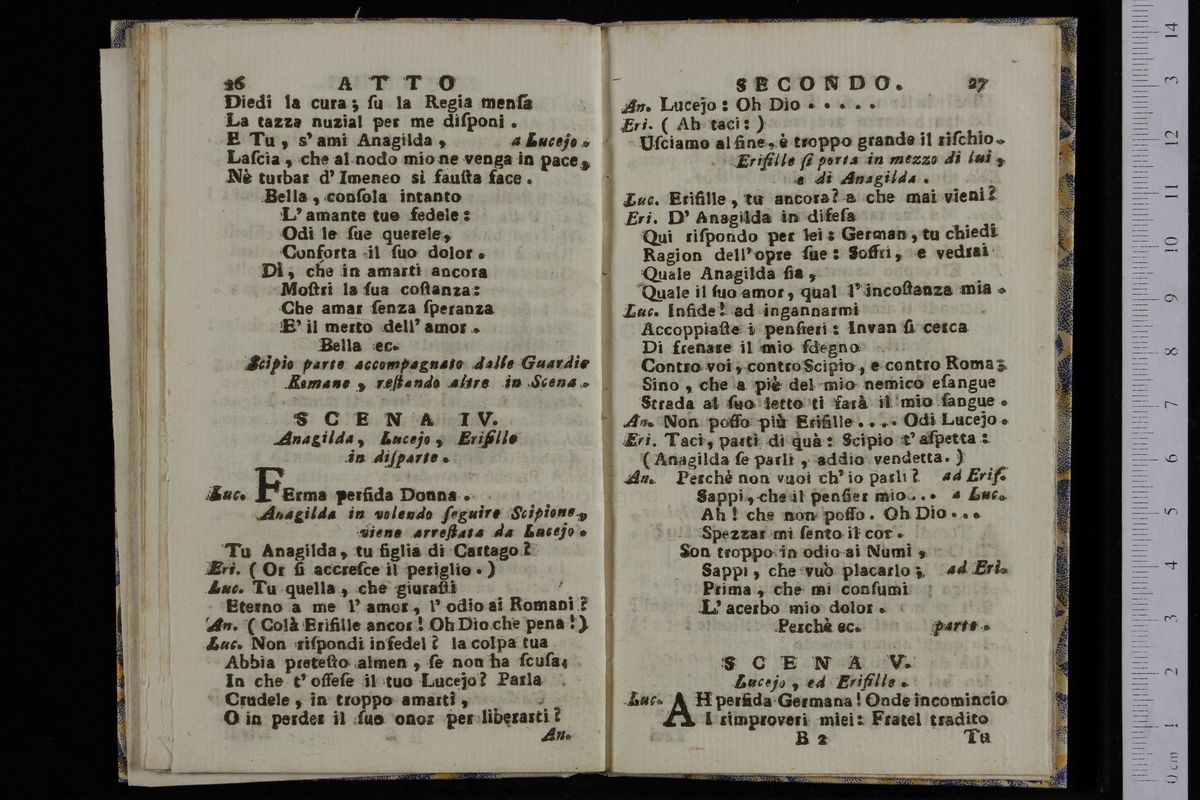 26 ATTO
Diedi la cura; ſu la Regia menſa
La tazza nuzial per me diſponi.
E Tu, s'ami Anagilda, a Lucejo.
Laſcia, che al nodo mio ne venga in pace,
Nè turbar d'Imeneo si fauſta face.
Bella, conſola intanto
L'amante tuo fedele:
Odi le ſue querele,
Conforta il ſuo dolor.
Di, che in amarti ancora
Moſtri la ſua coſtanza:
Che amar ſenza ſperanza
E' il merto dell'amor.
Bella ec.
Scipio parte accompagnato dalle Guardie
Romane, reſtando altre in Scena.
SCENA IV.
Anagilda, Lucejo, Eriſille
in diſparte.
Luc. FErma perfida Donna.
Anagilda in volendo ſeguire Scipione,
viene arreſtata da Lucejo.
Tu Anagilda, tu figlia di Cartago?
Eri. (Or ſi accreſce il periglio.)
Luc. Tu quella, che giuraſti
Eterno a me l'amor, l'odio ai Romani?
An. (Colà Erifille ancor! Oh Dio che pena!)
Luc. Non riſpondi infedel? la colpa tua
Abbia preteſto almen, ſe non ha ſcuſa.
In che t'offeſe il tuo Lucejo? Parla
Crudele, in troppo amarti,
O in perder il ſuo onor per liberarti?
An.
SECONDO. 27
An. Lucejo: Oh Dio.....
Eri. (Ah taci:)
Uſciamo al fine, è troppo grande il riſchio.
Erifille ſi porta in mezzo di lui,
e di Anagilda.
Luc. Erifille, tu ancora? a che mai vieni?
Eri. D'Anagilda in difeſa
Qui riſpondo per lei: German, tu chiedi
Ragion dell'opre ſue: Soffri, e vedrai
Quale Anagilda ſia,
Quale il ſuo amor, qual l'incoſtanza mia.
Luc. Infide! ad ingannarmi
Accoppiaſte i penſieri: Invan ſi cerca
Di frenare il mio ſdegno
Contro voi, contro Scipio, e contro Roma;
Sino, che a piè del mio nemico eſangue
Strada al ſuo letto ti farà il mio ſangue.
An. Non poſſo più Erifille.... Odi Lucejo.
Eri. Taci, parti di quà: Scipio t'aſpetta:
(Anagilda ſe parli, addio vendetta.)
An. Perchè non vuoi ch'io parli? ad Eriſ.
Sappi, che il penſier mio... a Luc.
Ah! che non poſſo. Oh Dio...
Spezzar mi ſento il cor.
Son troppo in odio ai Numi,
Sappi, che vuò placarlo; ad Eri.
Prima, che mi conſumi
L'acerbo mio dolor.
Perchè ec. parte.
SCENA V.
Lucejo, ed Erifille.
Luc. AH perfida Germana! Onde incomincio
I rimproveri miei: Fratel tradito
B 2 Tu
14
3
12
11
10
9
8
7
6
5
4
3
2
1
0 cm